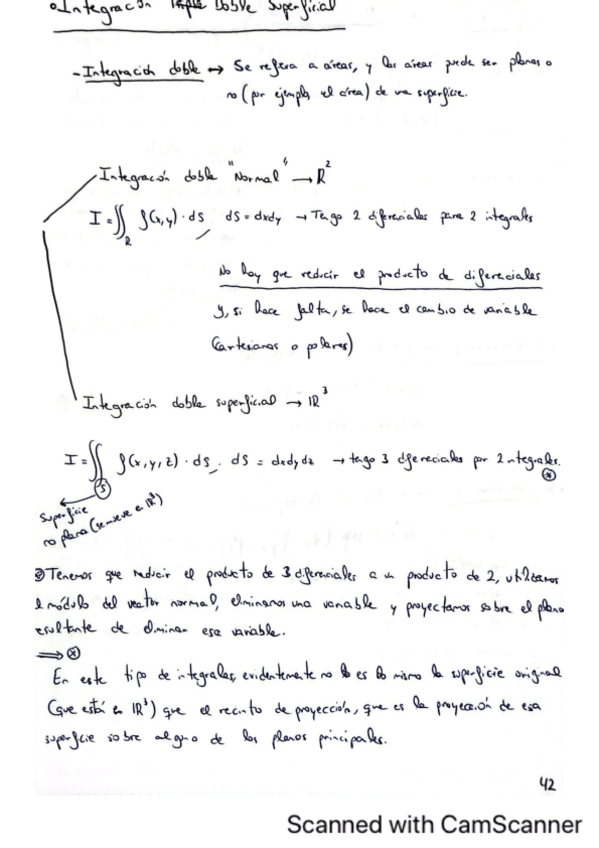 • Integración Triple Doble Superficial
- Integración doble → Se refiera a áreas, y las áreas puede ser planas o
no (por ejemplo el área) de una superficie.
Integración doble "Normal" → R²
I = ∬_R f(x,y) · dS, dS = dxdy → Tengo 2 diferenciales para 2 integrales
No hay que reducir el producto de diferenciales
y, si hace falta, se hace el cambio de variable
(Cartesianas o polares)
Integración doble superficial → R³
I = ∬_S f(x,y,z) · dS, dS = dxdydz → tengo 3 diferenciales por 2 integrales.
⊛
Superficie
no plana (se mueve en R³)
⊛ Tenemos que reducir el producto de 3 diferenciales a un producto de 2, utilizamos
el módulo del vector normal, eliminamos una variable y proyectamos sobre el plano
resultante de eliminar esa variable.
⟹ ⊛
En este tipo de integrales, evidentemente no es lo mismo la superficie original
(que está en R³) que el recinto de proyección, que es la proyección de esa
superficie sobre alguno de los planos principales.
42
Scanned with CamScanner